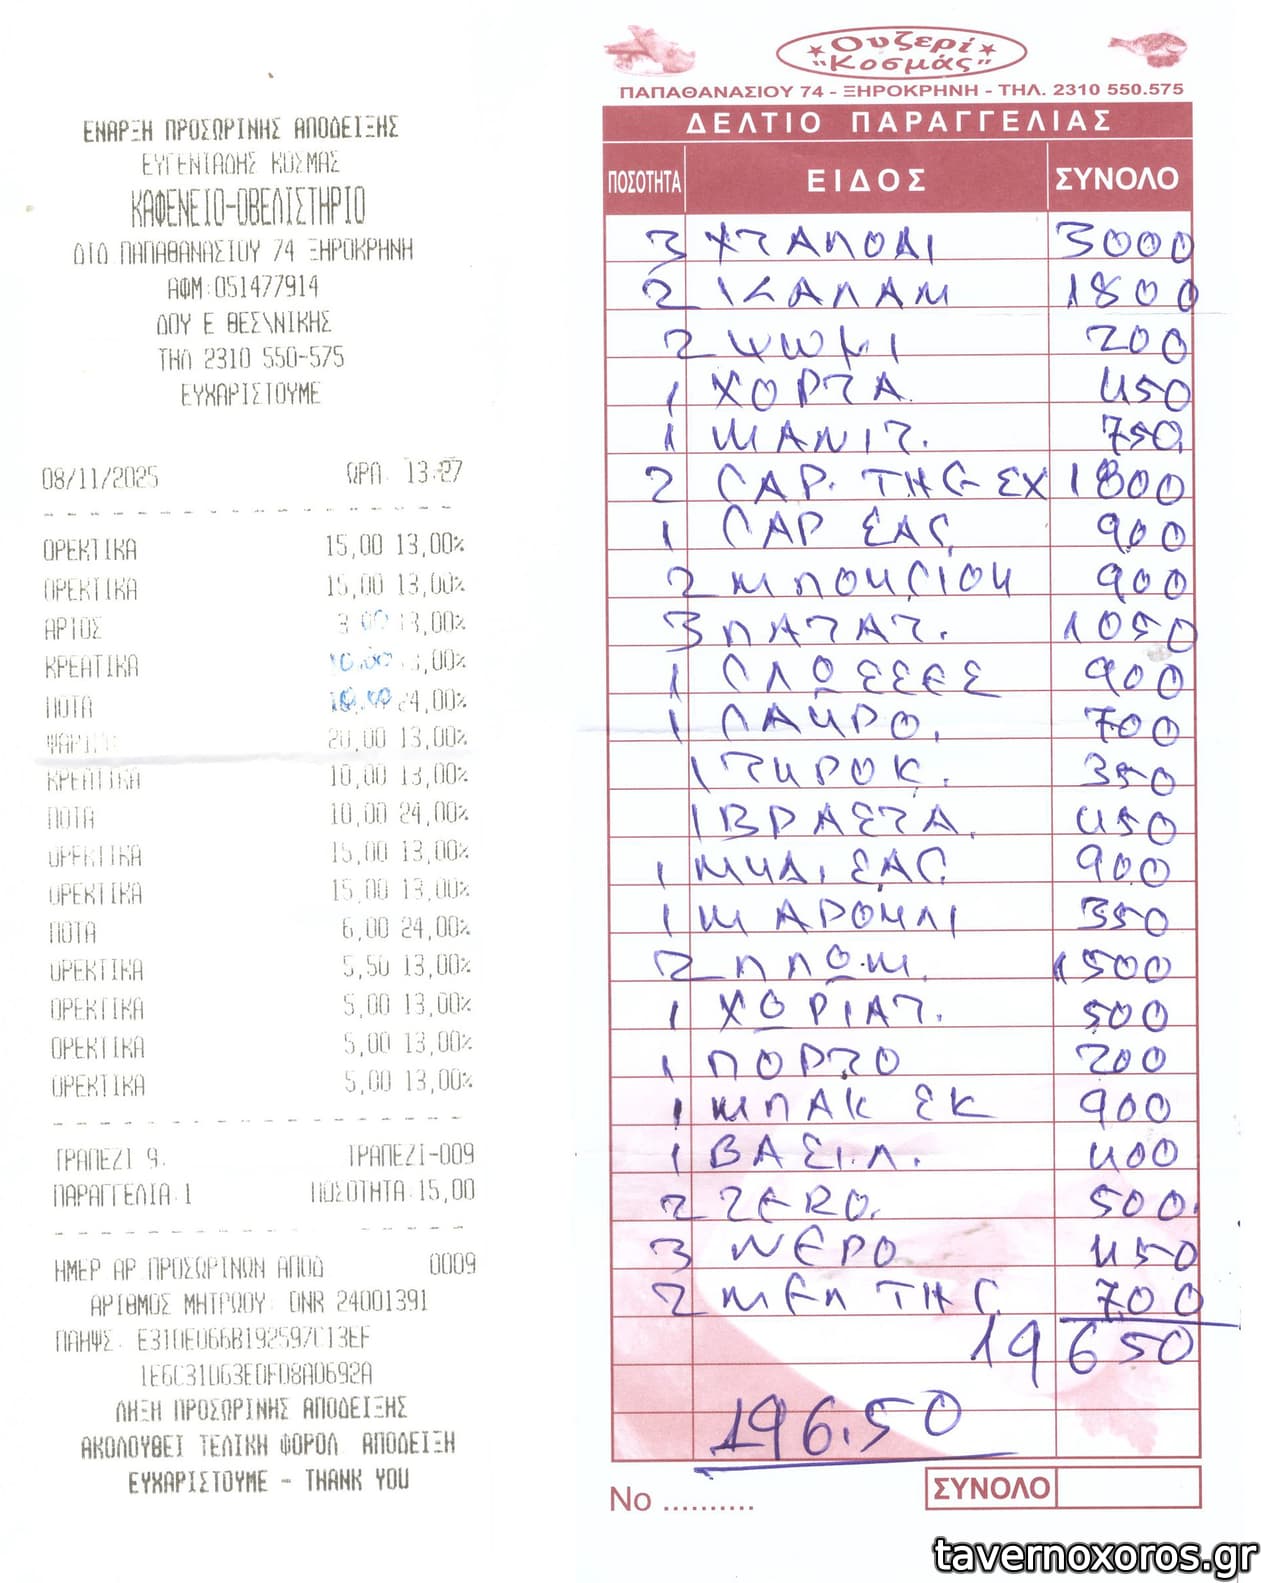 ΕΝΑΡΞΗ ΠΡΟΣΩΡΙΝΗΣ ΑΠΟΔΕΙΞΗΣ
ΕΥΓΕΝΙΑΔΗΣ ΚΟΣΜΑΣ
ΚΑΦΕΝΕΙΟ-ΟΒΕΛΙΣΤΗΡΙΟ
ΔΙΟ ΠΑΠΑΘΑΝΑΣΙΟΥ 74 ΞΗΡΟΚΡΗΝΗ
ΑΦΜ:051477914
ΔΟΥ Ε ΘΕΣ\ΝΙΚΗΣ
ΤΗΛ 2310 550-575
ΕΥΧΑΡΙΣΤΟΥΜΕ
08/11/2025 ΩΡΑ. 13:27
ΟΡΕΚΤΙΚΑ 15,00 13,00%
ΟΡΕΚΤΙΚΑ 15,00 13,00%
ΑΡΤΟΣ 3,00 13,00%
ΚΡΕΑΤΙΚΑ 10,00 13,00%
ΠΟΤΑ 10,00 24,00%
20,00 13,00%
ΚΡΕΑΤΙΚΑ 10,00 13,00%
ΠΟΤΑ 10,00 24,00%
ΟΡΕΚΤΙΚΑ 15,00 13,00%
ΟΡΕΚΤΙΚΑ 15,00 13,00%
ΠΟΤΑ 6,00 24,00%
ΟΡΕΚΤΙΚΑ 5,50 13,00%
ΟΡΕΚΤΙΚΑ 5,00 13,00%
ΟΡΕΚΤΙΚΑ 5,00 13,00%
ΟΡΕΚΤΙΚΑ 5,00 13,00%
ΤΡΑΠΕΖΙ 9. ΤΡΑΠΕΖΙ-009
ΠΑΡΑΓΓΕΛΙΑ:1 ΠΟΣΟΤΗΤΑ:15,00
ΗΜΕΡ ΑΡ ΠΡΟΣΩΡΙΝΩΝ ΑΠΟΔ 0009
ΑΡΙΘΜΟΣ ΜΗΤΡΩΟΥ: DNR 24001391
ΠΑΗΨΣ:
ΛΗΞΗ ΠΡΟΣΩΡΙΝΗΣ ΑΠΟΔΕΙΞΗΣ
ΑΚΟΛΟΥΘΕΙ ΤΕΛΙΚΗ ΦΟΡΟΛ ΑΠΟΔΕΙΞΗ
ΕΥΧΑΡΙΣΤΟΥΜΕ - THANK YOU
Ουζερί
"Κοσμάς"
ΠΑΠΑΘΑΝΑΣΙΟΥ 74 - ΞΗΡΟΚΡΗΝΗ - ΤΗΛ. 2310 550.575
ΔΕΛΤΙΟ ΠΑΡΑΓΓΕΛΙΑΣ
ΠΟΣΟΤΗΤΑ ΕΙΔΟΣ ΣΥΝΟΛΟ
3 ΧΤΑΠΟΔΙ 3000
2 ΚΑΛΑΜ 1800
2 ΨΩΜΙ 200
1 ΧΟΡΤΑ 450
1 ΜΑΝΙΤ. 750
2 ΓΑΡ. ΤΗΓ ΕΧ 1800
1 ΓΑΡ ΣΑΓ. 900
2 ΜΠΟΥΓΙΟΥ 900
3 ΠΑΤΑΤ. 1050
1 ΓΛΩΣΣΕΣ 900
1 ΓΑΥΡΟ. 700
1 ΤΥΡΟΚ. 350
1 ΒΡΑΣΤΑ. 450
1 ΜΥΔ. ΣΑΓ. 900
1 ΜΑΡΟΥΛΙ 350
2 ΠΛΩΜ. 1500
1 ΧΩΡΙΑΤ. 500
1 ΠΟΡΤΟ 200
1 ΜΠΑΚ ΣΚ 900
1 ΒΑΣΙΛ. 400
2 ZERO. 500
3 ΝΕΡΟ 450
2 ΜΕΛ ΤΗΓ 700
19650
196.50
Νο ..........
ΣΥΝΟΛΟ
tavernoxoros.gr